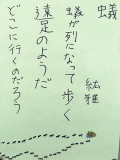 蟻
絃雅
蟻が列になって歩く
遠足のようだ
どこに行くのだろう